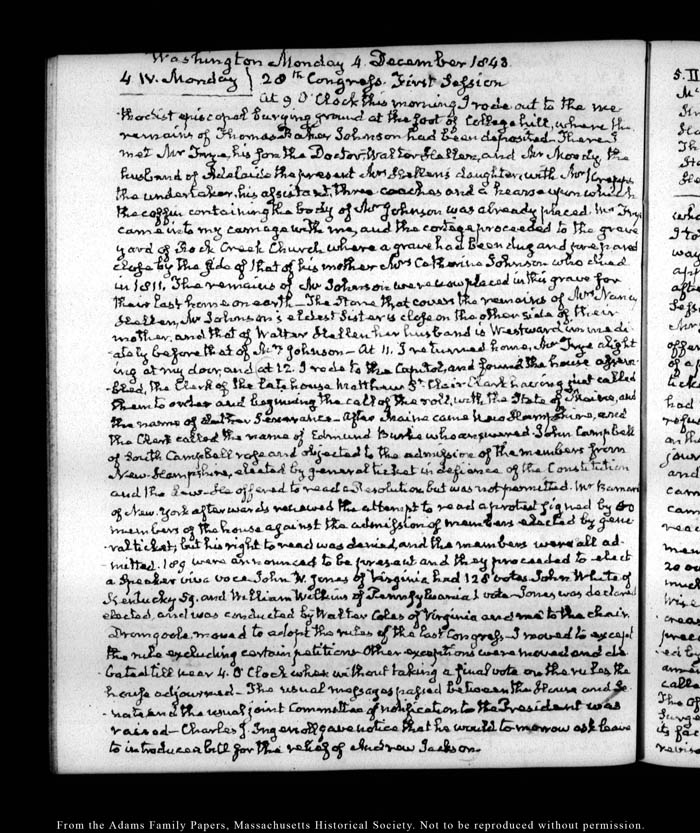 Washington Monday 4. December 1843.
4 IV. Monday } 28th Congress. First Session
At 9 O'Clock this morning I rode out to the me
-thodist episcopal burying ground at the foot of College hill, where the
remains of Thomas Baker Johnson had been deposited. There I
met Mr Frye, his son the Doctor, Walter Hellen, and Mr Moody, the
husband of Adelaide the present Mrs Hellen's daughter, with Mr
the undertaker, his assistant, three coaches and a hearse upon which
the coffin containing the body of Mr Johnson was already placed. Mr Frye
came into my carriage with me, and the cortege proceeded to the grave
yard of Rock Creek Church, where a grave had been dug and prepared
close by the side of that of his mother Mrs Catherine Johnson who died
in 1811. The remains of Mr Johnson were now placed in this grave for
their last home on earth — The stone that covers the remains of Mrs Nancy
Hellen, Mr Johnson's eldest Sister is close on the other side of their
mother, and that of Walter Hellen her husband is Westward immedi
-ately before that of Mrs Johnson — At 11. I returned home, Mr Frye alight
ing at my door, and at 12. I rode to the Capitol, and found the house assem
-bled, the Clerk of the late house Matthew St. Clair Clark having just called
them to order and beginning the call of the roll, with the State of Maine, and
the name of Luther Severance — After Maine came New Hampshire, and
the Clerk called the name of Edmund Burke who answered. John Campbell
of South Campbell rose and objected to the admission of the members from
New-Hampshire, elected by general ticket in defiance of the Constitution
and the Law. He offered to read a Resolution but was not permitted. Mr Barnard
of New York afterwards renewed the attempt to read a protest signed by 50
members of the house against the admission of members elected by gene
-ral ticket; but his right to read was denied, and the members were all ad-
-mitted. 189 were announced to be present and they proceeded to elect
a Speaker viva voce. John W. Jones of Virginia had 128 votes. John White of
Kentucky 59. and William Wilkins of Pennsylvania 1 vote. Jones was declared
elected, and was conducted by Walter Coles of Virginia and me to the chair.
Dromgoole moved to adopt the rules of the last Congress — I moved to except
the rule excluding certain petitions. Other exceptions were moved and de
bated till near 4. O'Clock when without taking a final vote on the rules the
house adjourned — The usual messages passed between the House and Se-
-nate and the usual joint Committee of notification to the President was
raised — Charles J. Ingersoll gave notice that he would tomorrow ask leave
to introduce a bill for the relief of Andrew Jackson.
From the Adams Family Papers, Massachusetts Historical Society. Not to be reproduced without permission.